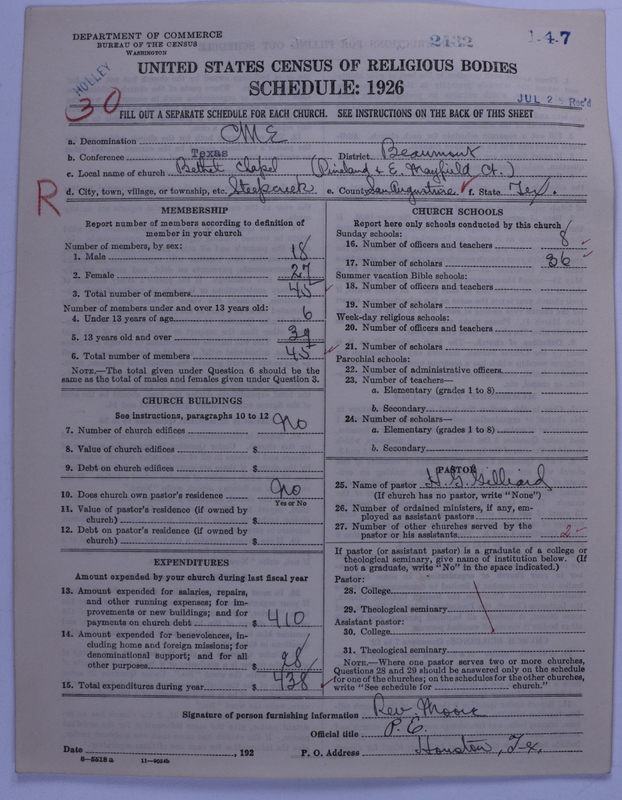 DEPARTMENT OF COMMERCE
BUREAU OF THE CENSUS
WASHINGTON
2432
1-4-7
UNITED STATES CENSUS OF RELIGIOUS BODIES
SCHEDULE: 1926
30
JUL 2 Rec'd
FILL OUT A SEPARATE SCHEDULE FOR EACH CHURCH. SEE INSTRUCTIONS ON THE BACK OF THIS SHEET
a. Denomination CME
b. Conference Texas District Beaumont
c. Local name of church Bethel Chapel (Pineland & E. Mayfield Ct.)
R
d. City, town, village, or township, etc. Steepcreek e. County San Augustine f. State Tex.
MEMBERSHIP
Report number of members according to definition of
member in your church
Number of members, by sex:
1. Male 18
2. Female 27
3. Total number of members 45
Number of members under and over 13 years old:
4. Under 13 years of age 6
5. 13 years old and over 39
6. Total number of members 45
NOTE.—The total given under Question 6 should be the
same as the total of males and females given under Question 3.
CHURCH BUILDINGS
See instructions, paragraphs 10 to 12
7. Number of church edifices No
8. Value of church edifices $
9. Debt on church edifices $
10. Does church own pastor's residence No
Yes or No
11. Value of pastor's residence (if owned by
church) $
12. Debt on pastor's residence (if owned by
church) $
EXPENDITURES
Amount expended by your church during last fiscal year
13. Amount expended for salaries, repairs,
and other running expenses; for im-
provements or new buildings; and for
payments on church debt $ 410
14. Amount expended for benevolences, in-
cluding home and foreign missions; for
denominational support; and for all
other purposes $ 28
15. Total expenditures during year $ 438
CHURCH SCHOOLS
Report here only schools conducted by this church
Sunday schools:
16. Number of officers and teachers 8
17. Number of scholars 36
Summer vacation Bible schools:
18. Number of officers and teachers
19. Number of scholars
Week-day religious schools:
20. Number of officers and teachers
21. Number of scholars
Parochial schools:
22. Number of administrative officers
23. Number of teachers—
a. Elementary (grades 1 to 8)
b. Secondary
24. Number of scholars—
a. Elementary (grades 1 to 8)
b. Secondary
PASTOR
25. Name of pastor H. G. Gilliard
(If church has no pastor, write "None")
26. Number of ordained ministers, if any, em-
ployed as assistant pastors
27. Number of other churches served by the
pastor or his assistants 2
If pastor (or assistant pastor) is a graduate of a college or
theological seminary, give name of institution below. (If
not a graduate, write "No" in the space indicated.)
Pastor:
28. College
29. Theological seminary
Assistant pastor:
30. College
31. Theological seminary
NOTE.—Where one pastor serves two or more churches,
Questions 28 and 29 should be answered only on the schedule
for one of the churches; on the schedules for the other churches,
write "See schedule for church."
Signature of person furnishing information Rev Moore
Official title P. E.
Date , 192 P. O. Address Houston, Tex,
8-5518a 11-9034b